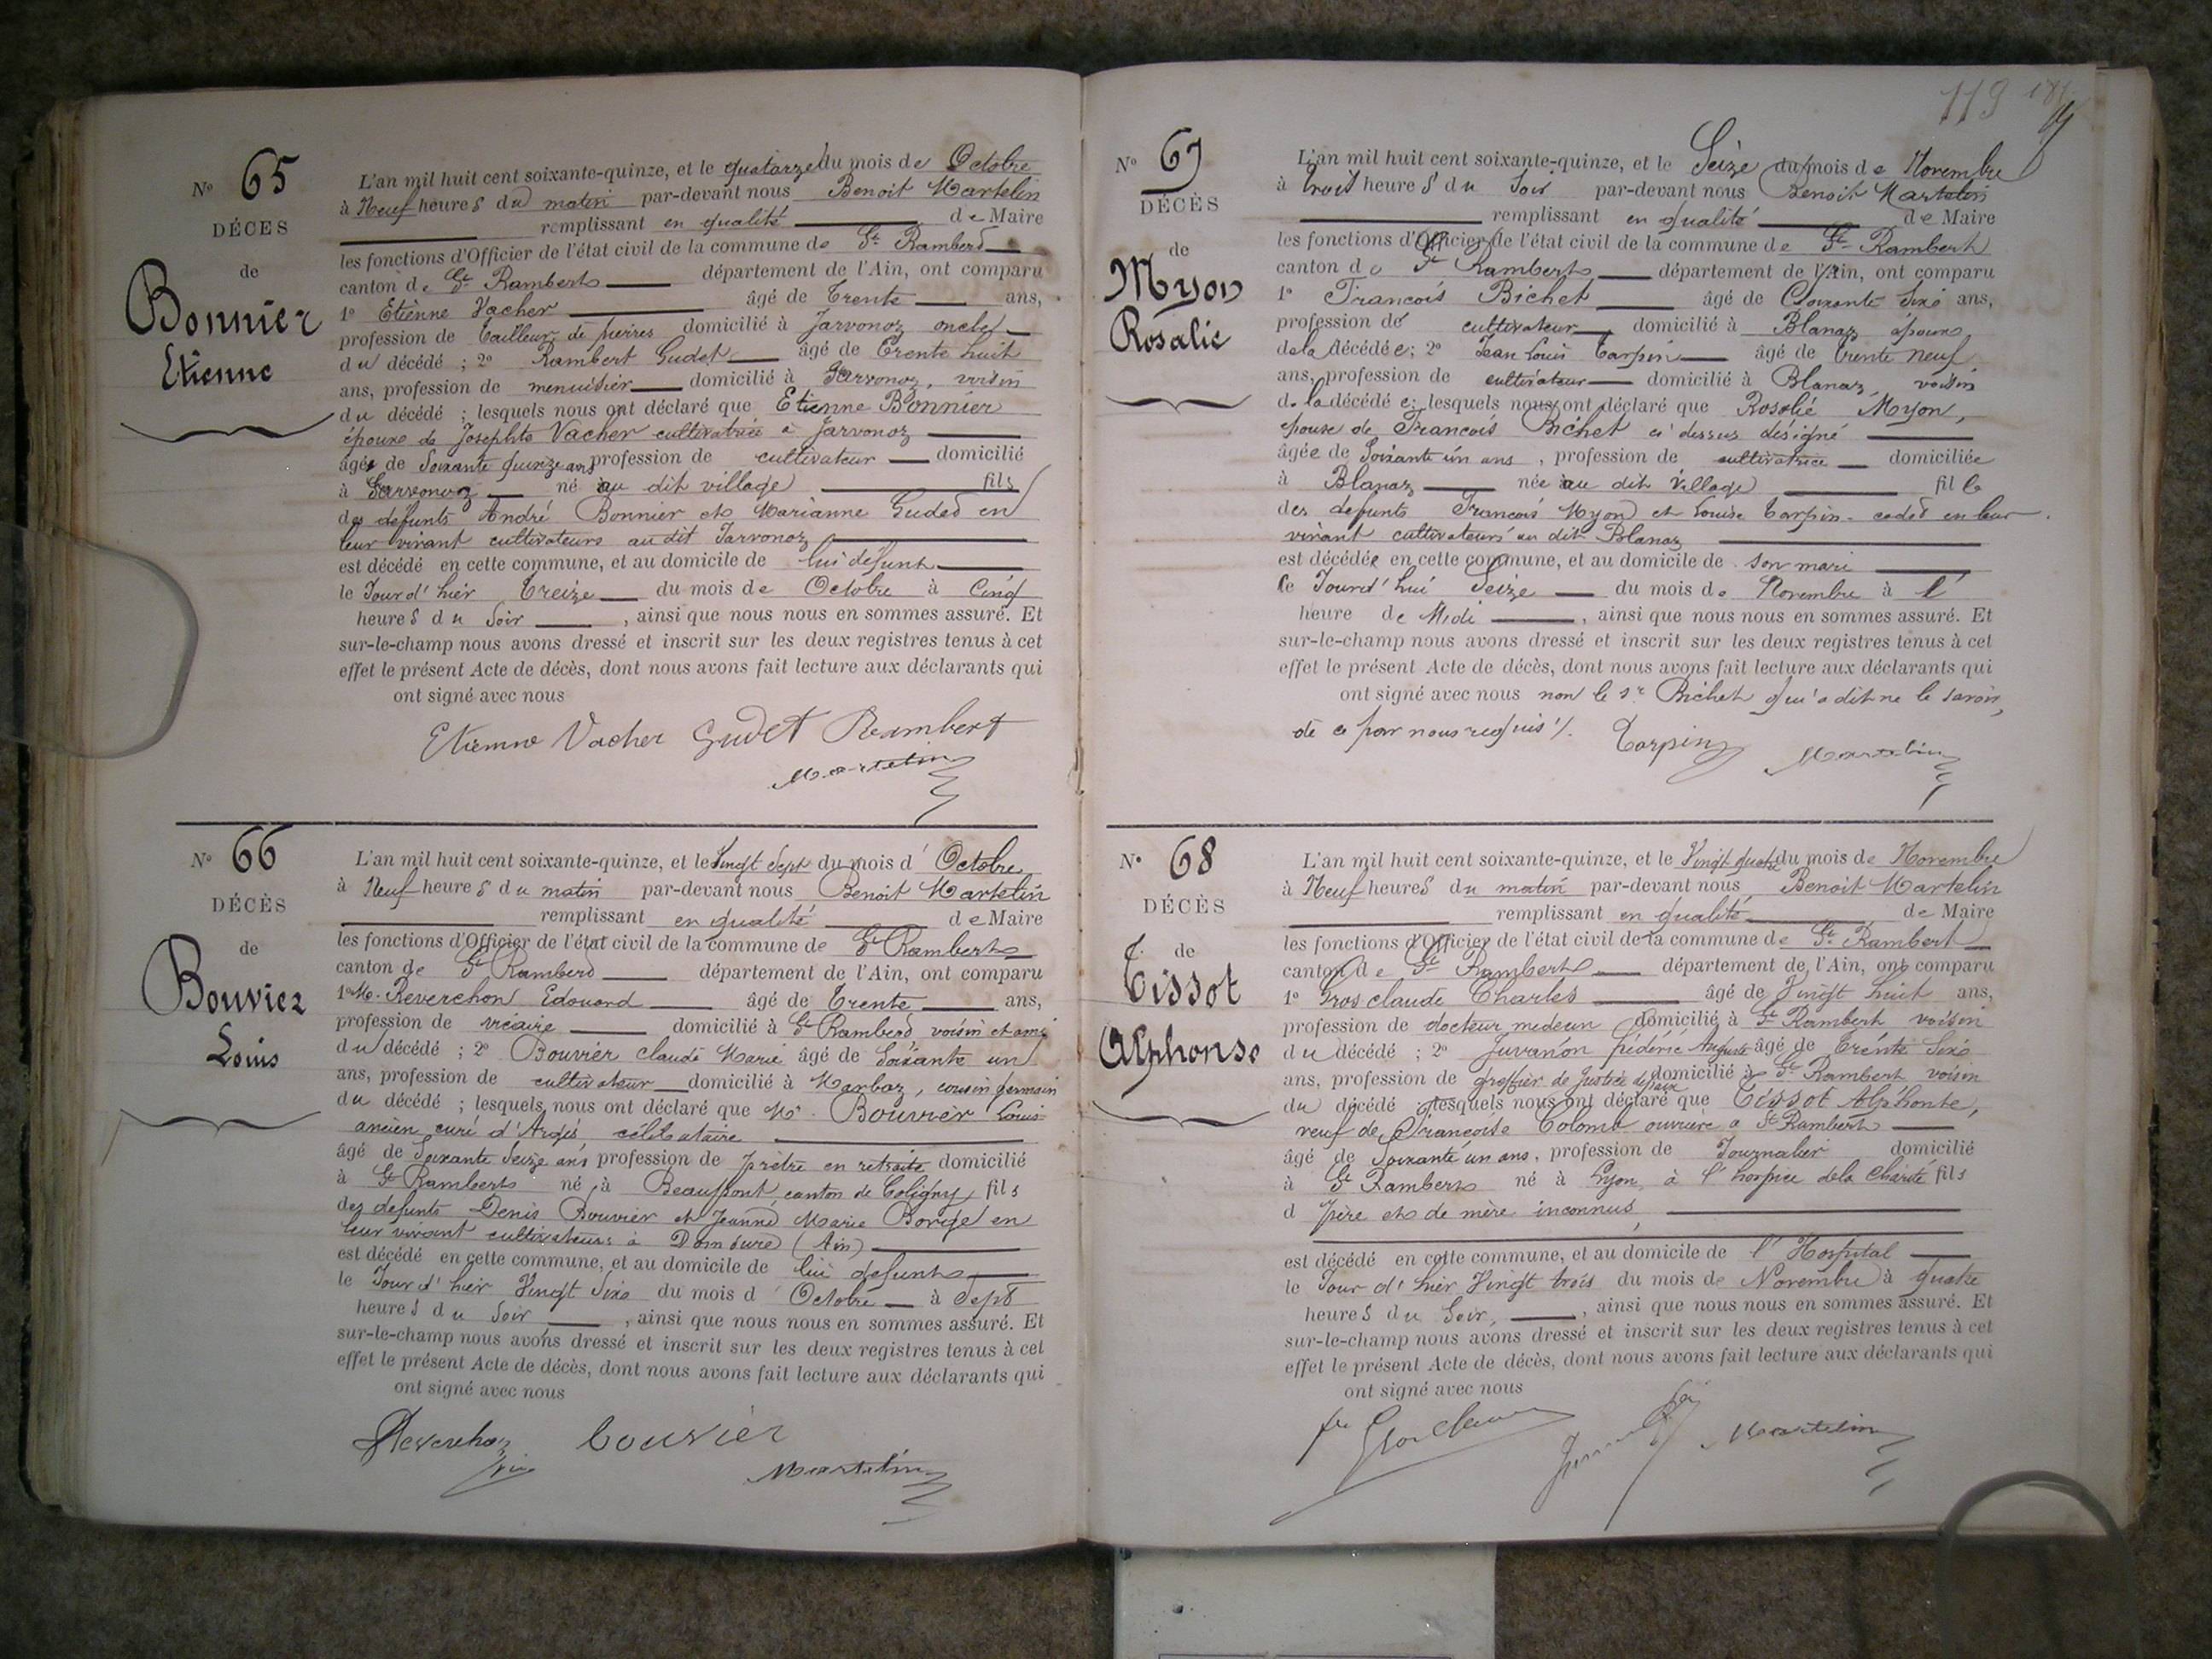 N° 65
DÉCÈS
de
Bonnier
Etienne
L'an mil huit cent soixante-quinze, et le quatorze du mois de Octobre
à Neuf heures du matin par-devant nous Benoit Martelin
remplissant en qualité de Maire
les fonctions d'Officier de l'état civil de la commune de St Rambert
canton de St Rambert département de l'Ain, ont comparu
1° Etienne Vacher âgé de trente ans,
profession de tailleur de pierres domicilié à Javornoz oncle
du décédé ; 2° Rambert Gudet âgé de trente huit
ans, profession de menuisier domicilié à Javornoz, voisin
du décédé ; lesquels nous ont déclaré que Etienne Bonnier
époux de Josephte Vacher cultivatrice à Javornoz
âgé de soixante quinze ans profession de cultivateur domicilié
à Javornoz né au dit village fils
des defunts André Bonnier et Marianne Gudet en
leur vivant cultivateurs au dit Javornoz
est décédé en cette commune, et au domicile de lui défunt
le Jour d'hier treize du mois de Octobre à Cinq
heures du soir , ainsi que nous nous en sommes assuré. Et
sur-le-champ nous avons dressé et inscrit sur les deux registres tenus à cet
effet le présent Acte de décès, dont nous avons fait lecture aux déclarants qui
ont signé avec nous
Etienne Vacher Gudet Rambert
Martelin
N° 66
DÉCÈS
de
Bouvier
Louis
L'an mil huit cent soixante-quinze, et le Vingt sept du mois d' Octobre
à Neuf heures du matin par-devant nous Benoit Martelin
remplissant en qualité de Maire
les fonctions d'Officier de l'état civil de la commune de St Rambert
canton de St Rambert département de l'Ain, ont comparu
1° M. Reverchon Edouard âgé de trente ans,
profession de vicaire domicilié à St Rambert voisin et ami
du décédé ; 2° Bouvier claude Marie âgé de soixante un
ans, profession de cultivateur domicilié à Marboz, cousin germain
du décédé ; lesquels nous ont déclaré que Mr. Bouvier Louis
ancien curé d'Argis, célibataire
âgé de soixante seize ans profession de prêtre en retraite domicilié
à St Rambert né à Beaupont canton de Coligny, fils
des defunts Denis Bouvier et Jeanne Marie Borge en
leur vivant cultivateurs à Domsure (Ain)
est décédé en cette commune, et au domicile de lui defunt
le Jour d'hier Vingt six du mois d' Octobre à sept
heures du soir , ainsi que nous nous en sommes assuré. Et
sur-le-champ nous avons dressé et inscrit sur les deux registres tenus à cet
effet le présent Acte de décès, dont nous avons fait lecture aux déclarants qui
ont signé avec nous
Reverchon vic Bouvier
Martelin
119
N° 67
DÉCÈS
de
Myon
Rosalie
L'an mil huit cent soixante-quinze, et le Seize du mois de Novembre
à trois heures du soir par-devant nous Benoit Martelin
remplissant en qualité de Maire
les fonctions d'Officier de l'état civil de la commune de St Rambert
canton de St Rambert département de l'Ain, ont comparu
1° François Bichet âgé de soixante six ans,
profession de cultivateur domicilié à Blanaz époux
de la décédée ; 2° Jean Louis Tarpin âgé de trente neuf
ans, profession de cultivateur domicilié à Blanaz, voisin
de la décédée ; lesquels nous ont déclaré que Rosalie Myon,
épouse de François Bichet ci dessus désigné
âgée de soixante un ans, profession de cultivatrice domiciliée
à Blanaz née au dit village fille
des defunts François Myon et Louise Tarpin-cadet en leur
vivant cultivateurs au dit Blanaz
est décédée en cette commune, et au domicile de son mari
le Jourd'hui seize du mois de Novembre à l'
heure de Midi , ainsi que nous nous en sommes assuré. Et
sur-le-champ nous avons dressé et inscrit sur les deux registres tenus à cet
effet le présent Acte de décès, dont nous avons fait lecture aux déclarants qui
ont signé avec nous non le sr Bichet qui a dit ne le savoir,
de ce par nous requis ./.
Tarpin Martelin
N° 68
DÉCÈS
de
Tissot
Alphonse
L'an mil huit cent soixante-quinze, et le Vingt quatre du mois de Novembre
à Neuf heures du matin par-devant nous Benoit Martelin
remplissant en qualité de Maire
les fonctions d'Officier de l'état civil de la commune de St Rambert
canton de St Rambert département de l'Ain, ont comparu
1° Gros claude Charles âgé de Vingt huit ans,
profession de docteur medecin domicilié à St Rambert voisin
du décédé ; 2° Juvanon fédéric Auguste âgé de trente six
ans, profession de greffier de Justice de paix domicilié à St Rambert voisin
du décédé lesquels nous ont déclaré que Tissot Alphonse,
veuf de Françoise Colomb ouvrière à St Rambert
âgé de soixante un ans, profession de Journalier domicilié
à St Rambert né à Lyon à l'hospice de la Charité fils
d père et de mère inconnus
est décédé en cette commune, et au domicile de l'Hospital
le Jour d'hier Vingt trois du mois de Novembre à quatre
heures du soir, , ainsi que nous nous en sommes assuré. Et
sur-le-champ nous avons dressé et inscrit sur les deux registres tenus à cet
effet le présent Acte de décès, dont nous avons fait lecture aux déclarants qui
ont signé avec nous
Martelin